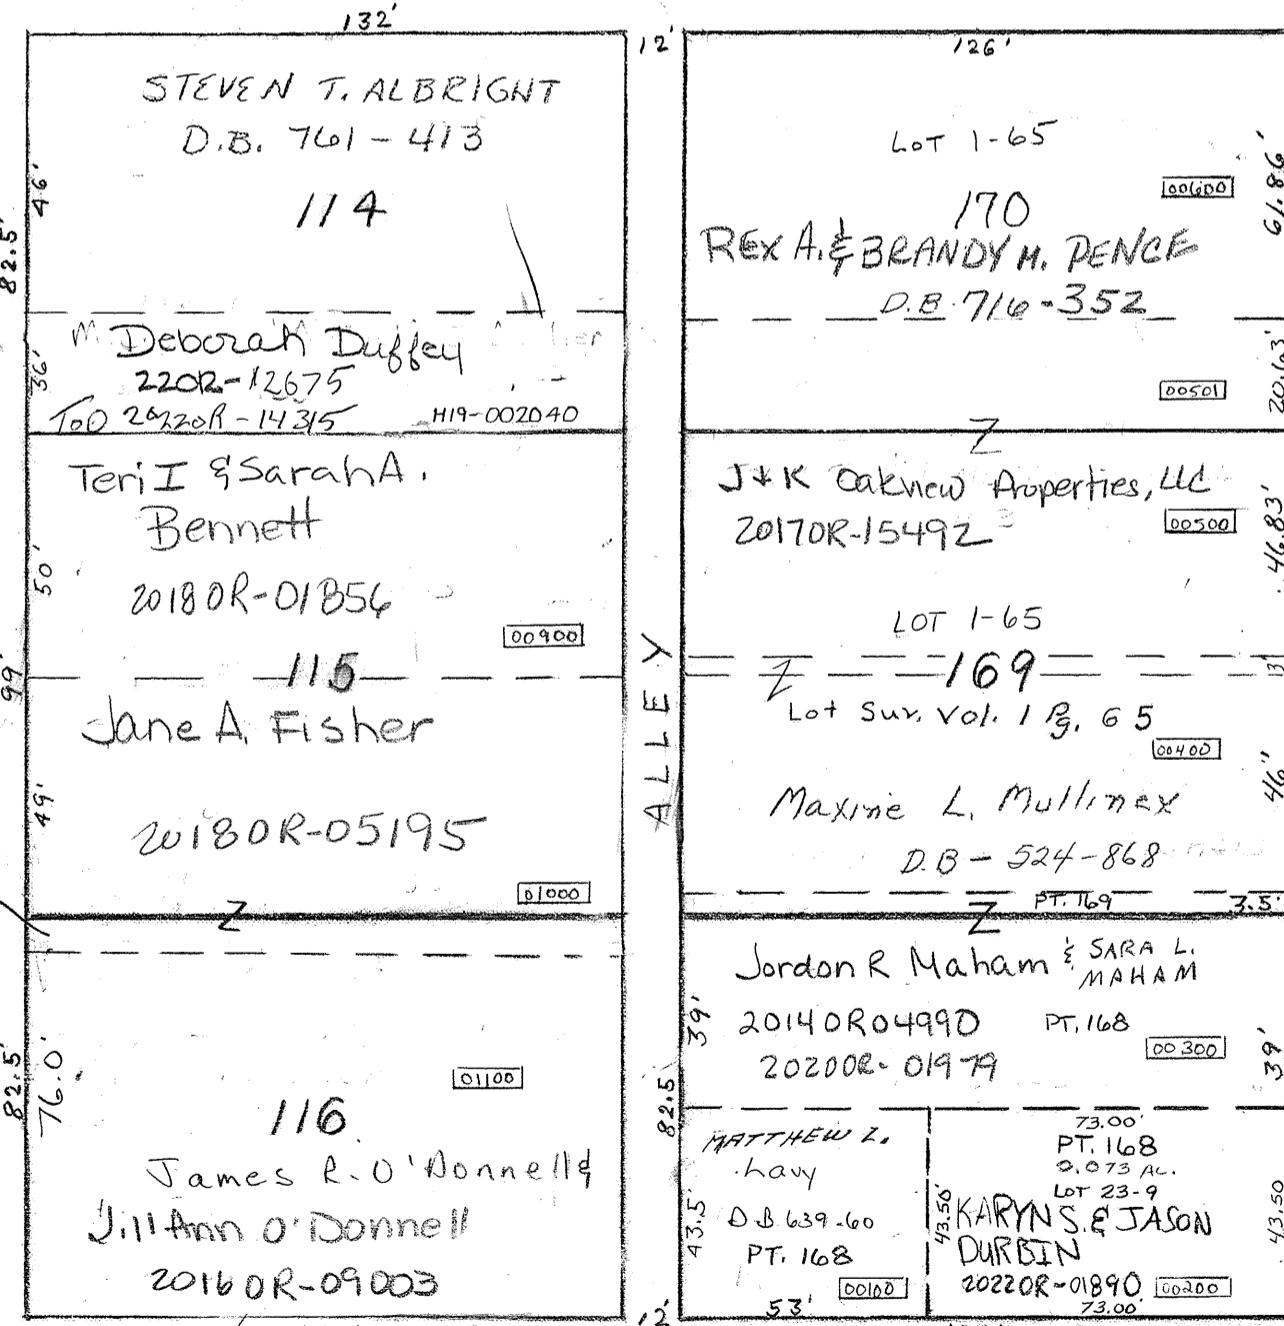 132'
STEVEN T. ALBRIGHT
D.B. 761-413
114
46'
82.5'
Deborah Duffey
220R-12675
36'
TOD 20220R-14315
H19-002040
Teri I & Sarah A.
Bennett
20180R-01856
50'
00900
115
99'
Jane A. Fisher
49'
20180R-05195
01000
Z
82.5'
76.0'
01100
116
James R. O'Donnell &
Jill Ann O'Donnell
20160R-09003
12'
ALLEY
12'
126'
LOT 1-65
00600
61.86'
170
REX A. & BRANDY M. PENCE
D.B. 716-352
20.63'
00501
Z
J & K Oakview Properties, LLC
20170R-15492
00500
46.83'
LOT 1-65
Z
169
3'
Lot Sur. Vol. 1 Pg. 65
00400
Maxine L. Mullinex
46"
D.B - 524-868
PT. 169
3.5'
Z
Jordon R Maham & SARA L.
MAHAM
20140R04990
PT. 168
20200R-01979
00300
39'
39'
82.5
MATTHEW L.
Lavy
D.B. 639-60
PT. 168
43.5'
00100
53'
73.00'
PT. 168
0.073 AC.
LOT 23-9
KARYN S. & JASON
DURBIN
20220R-01890
00200
43.50'
43.50
73.00'